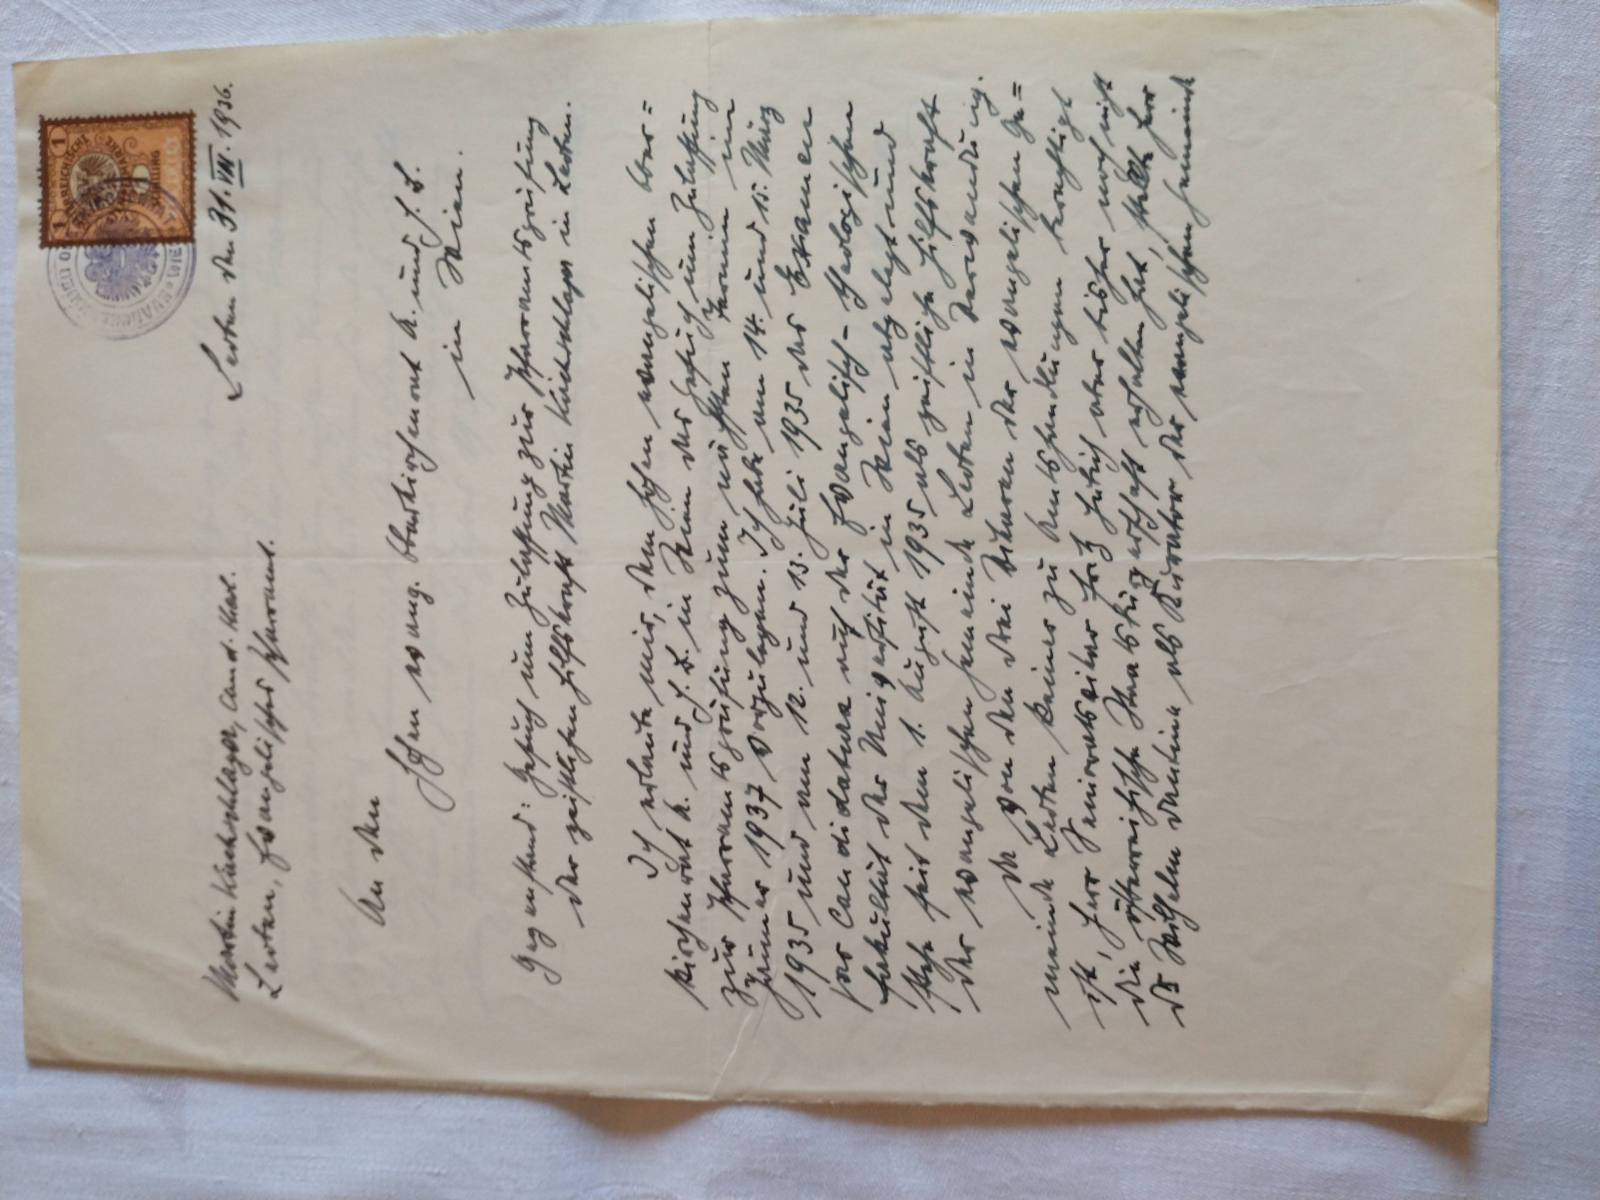 Martin Kirchschlager, cand. theol.
Leoben, Evangelisches Pfarramt.
Leoben den 31. VIII. 1936.
An den
Hohen evang. Oberkirchenrat A. und H. B.
in Wien.
Gegenstand: Gesuch um Zulassung zur Pfarramtsprüfung
der geistlichen Hilfskraft Martin Kirchschlager in Leoben.
Ich erlaube mir, dem hohen evangelischen Ober=
kirchenrat A. und H. B. in Wien das Gesuch um Zulassung
zur Pfarramtsprüfung zum nächsten Termin im
Jänner 1937 vorzulegen. Ich habe am 14. und 15. März
1935 und am 12. und 13. Juli 1935 das Examen
pro Candidatura auf der Evangelisch-theologischen
Fakultät der Universität in Wien abgelegt und
stehe seit dem 1. August 1935 als geistliche Hilfskraft
der evangelischen Gemeinde Leoben in Verwendung.
Da von den drei Vikaren der evangelischen Ge=
meinde Leoben keiner zu Amtshandlungen berechtigt
ist, Herr Senioratsvikar Fritz aber bisher noch nicht
die österreichische Staatsbürgerschaft erhalten hat, stellt Herr
Dr Wilhelm als Kurator der evangelischen Gemeinde